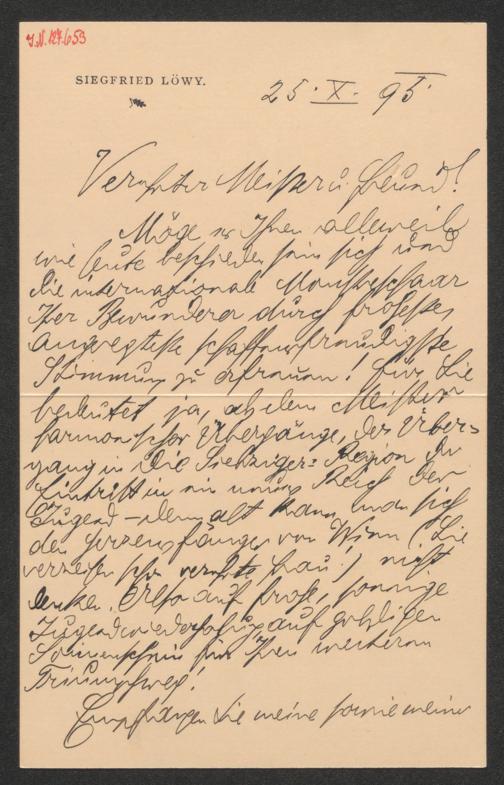 J.N. 127.653
SIEGFRIED LÖWY.
25. X. 95.
Verehrter Meister u. Freund!
Möge es Ihnen alleweil
wie heute beschieden sein sich und
die internationale Monstreschaar
Ihrer Bewunderer durch
angeregteste schaffensfreudigste
Stimmung zu erfreuen! Für Sie
bedeutet ja, als dem Meister
harmonischer Übergänge, der Über-
gang in die Siebziger-Region den
Eintritt in ein neues Reich der
Jugend – denn alt kann man sich
den Herzensfänger von Wien (Sie
verzeihen schon verehrte Frau!) nicht
denken. Also auf frohe, sonnige
Jugend auf goldigen
Sonnenschein für Ihren weiteren
Triumphweg!
Empfangen Sie meine sowie meiner